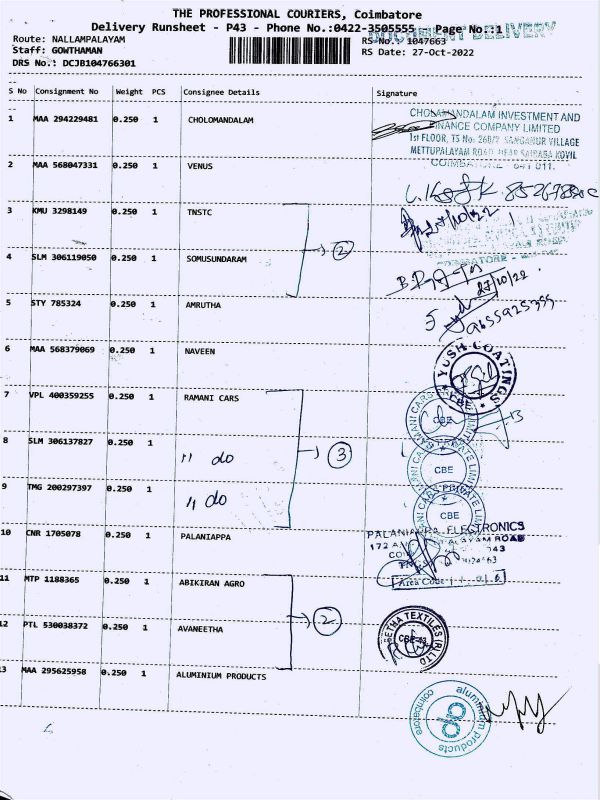 THE PROFESSIONAL COURIERS, Coimbatore
Delivery Runsheet - P43 - Phone No.:0422-3505555 Page No.:1
DOCUMENT DELIVERY
Route: NALLAMPALAYAM
Staff: GOWTHAMAN
DRS No.: DCJB104766301
RS No.: 1047663
RS Date: 27-Oct-2022
S No Consignment No Weight PCS Consignee Details Signature
1 MAA 294229481 0.250 1 CHOLOMANDALAM
CHOLAMANDALAM INVESTMENT AND
FINANCE COMPANY LIMITED
1st FLOOR, TS No: 268/7 SANGANUR VILLAGE
METTUPALAYAM ROAD, NEAR SAIBABA KOVIL
COIMBATORE - 641 011.
2 MAA 568047331 0.250 1 VENUS
3 KMU 3298149 0.250 1 TNSTC
27/10/22
2
4 SLM 306119050 0.250 1 SOMUSUNDARAM
COIMBATORE
27/10/22
5 STY 785324 0.250 1 AMRUTHA
9655925355
6 MAA 568379069 0.250 1 NAVEEN
YOSH COATINGS
CBE
7 VPL 400359255 0.250 1 RAMANI CARS
RAMANI CARS PRIVATE LIMITED
CBE
8 SLM 306137827 0.250 1 " do
3
RAMANI CARS PRIVATE LIMITED
CBE
9 TMG 200297397 0.250 1 " do
RAMANI CARS PRIVATE LIMITED
CBE
10 CNR 1705078 0.250 1 PALANIAPPA
PALANIAPPA ELECTRONICS
172 ROAD
043
Area Code
11 MTP 1188365 0.250 1 ABIKIRAN AGRO
2
12 PTL 530038372 0.250 1 AVANEETHA
TEXTILES (P) LTD
CBE-43
13 MAA 295625958 0.250 1 ALUMINIUM PRODUCTS
aluminium products
coimbatore